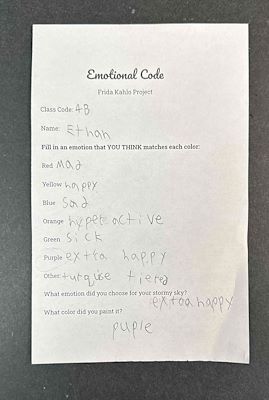 Emotional Code
Frida Kahlo Project
Class Code: 4B
Name: Ethan
Fill in an emotion that YOU THINK matches each color:
Red mad
Yellow happy
Blue Sad
Orange hyper active
Green Sick
Purple extra happy
Other: turquise tierd
What emotion did you choose for your stormy sky?
extra happy
What color did you paint it?
puple